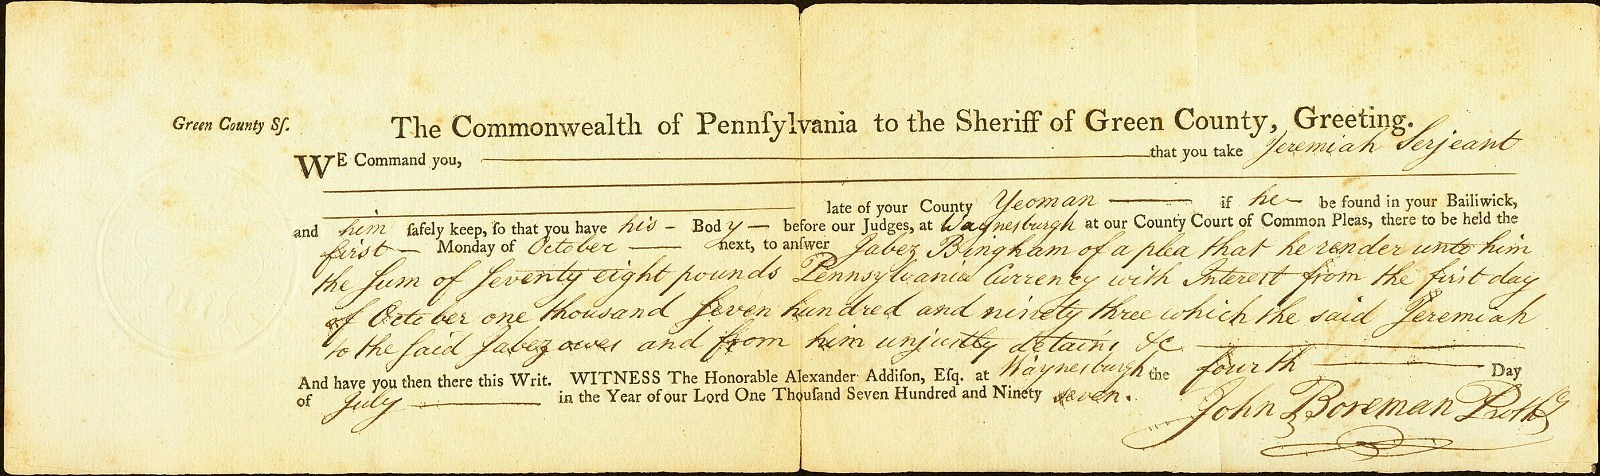 Green County Sſ.
The Commonwealth of Pennſylvania to the Sheriff of Green County, Greeting.
WE Command you, that you take Jeremiah Serjeant
late of your County Yeoman if he be found in your Bailiwick,
and him ſafely keep, ſo that you have his Body before our Judges, at Waynesburgh at our County Court of Common Pleas, there to be held the
first Monday of October next, to anſwer Jabez Bingham of a plea that he render unto him
the Sum of Seventy eight pounds Pennsylvania Currency with Interest from the first day
of October one thousand Seven hundred and ninety three which the said Jeremiah
to the said Jabez owes and from him unjustly detains &c
And have you then there this Writ. WITNESS The Honorable Alexander Addiſon, Eſq. at Waynesburgh the fourth Day
of July in the Year of our Lord One Thouſand Seven Hundred and Ninety seven.
John Boreman Prothy